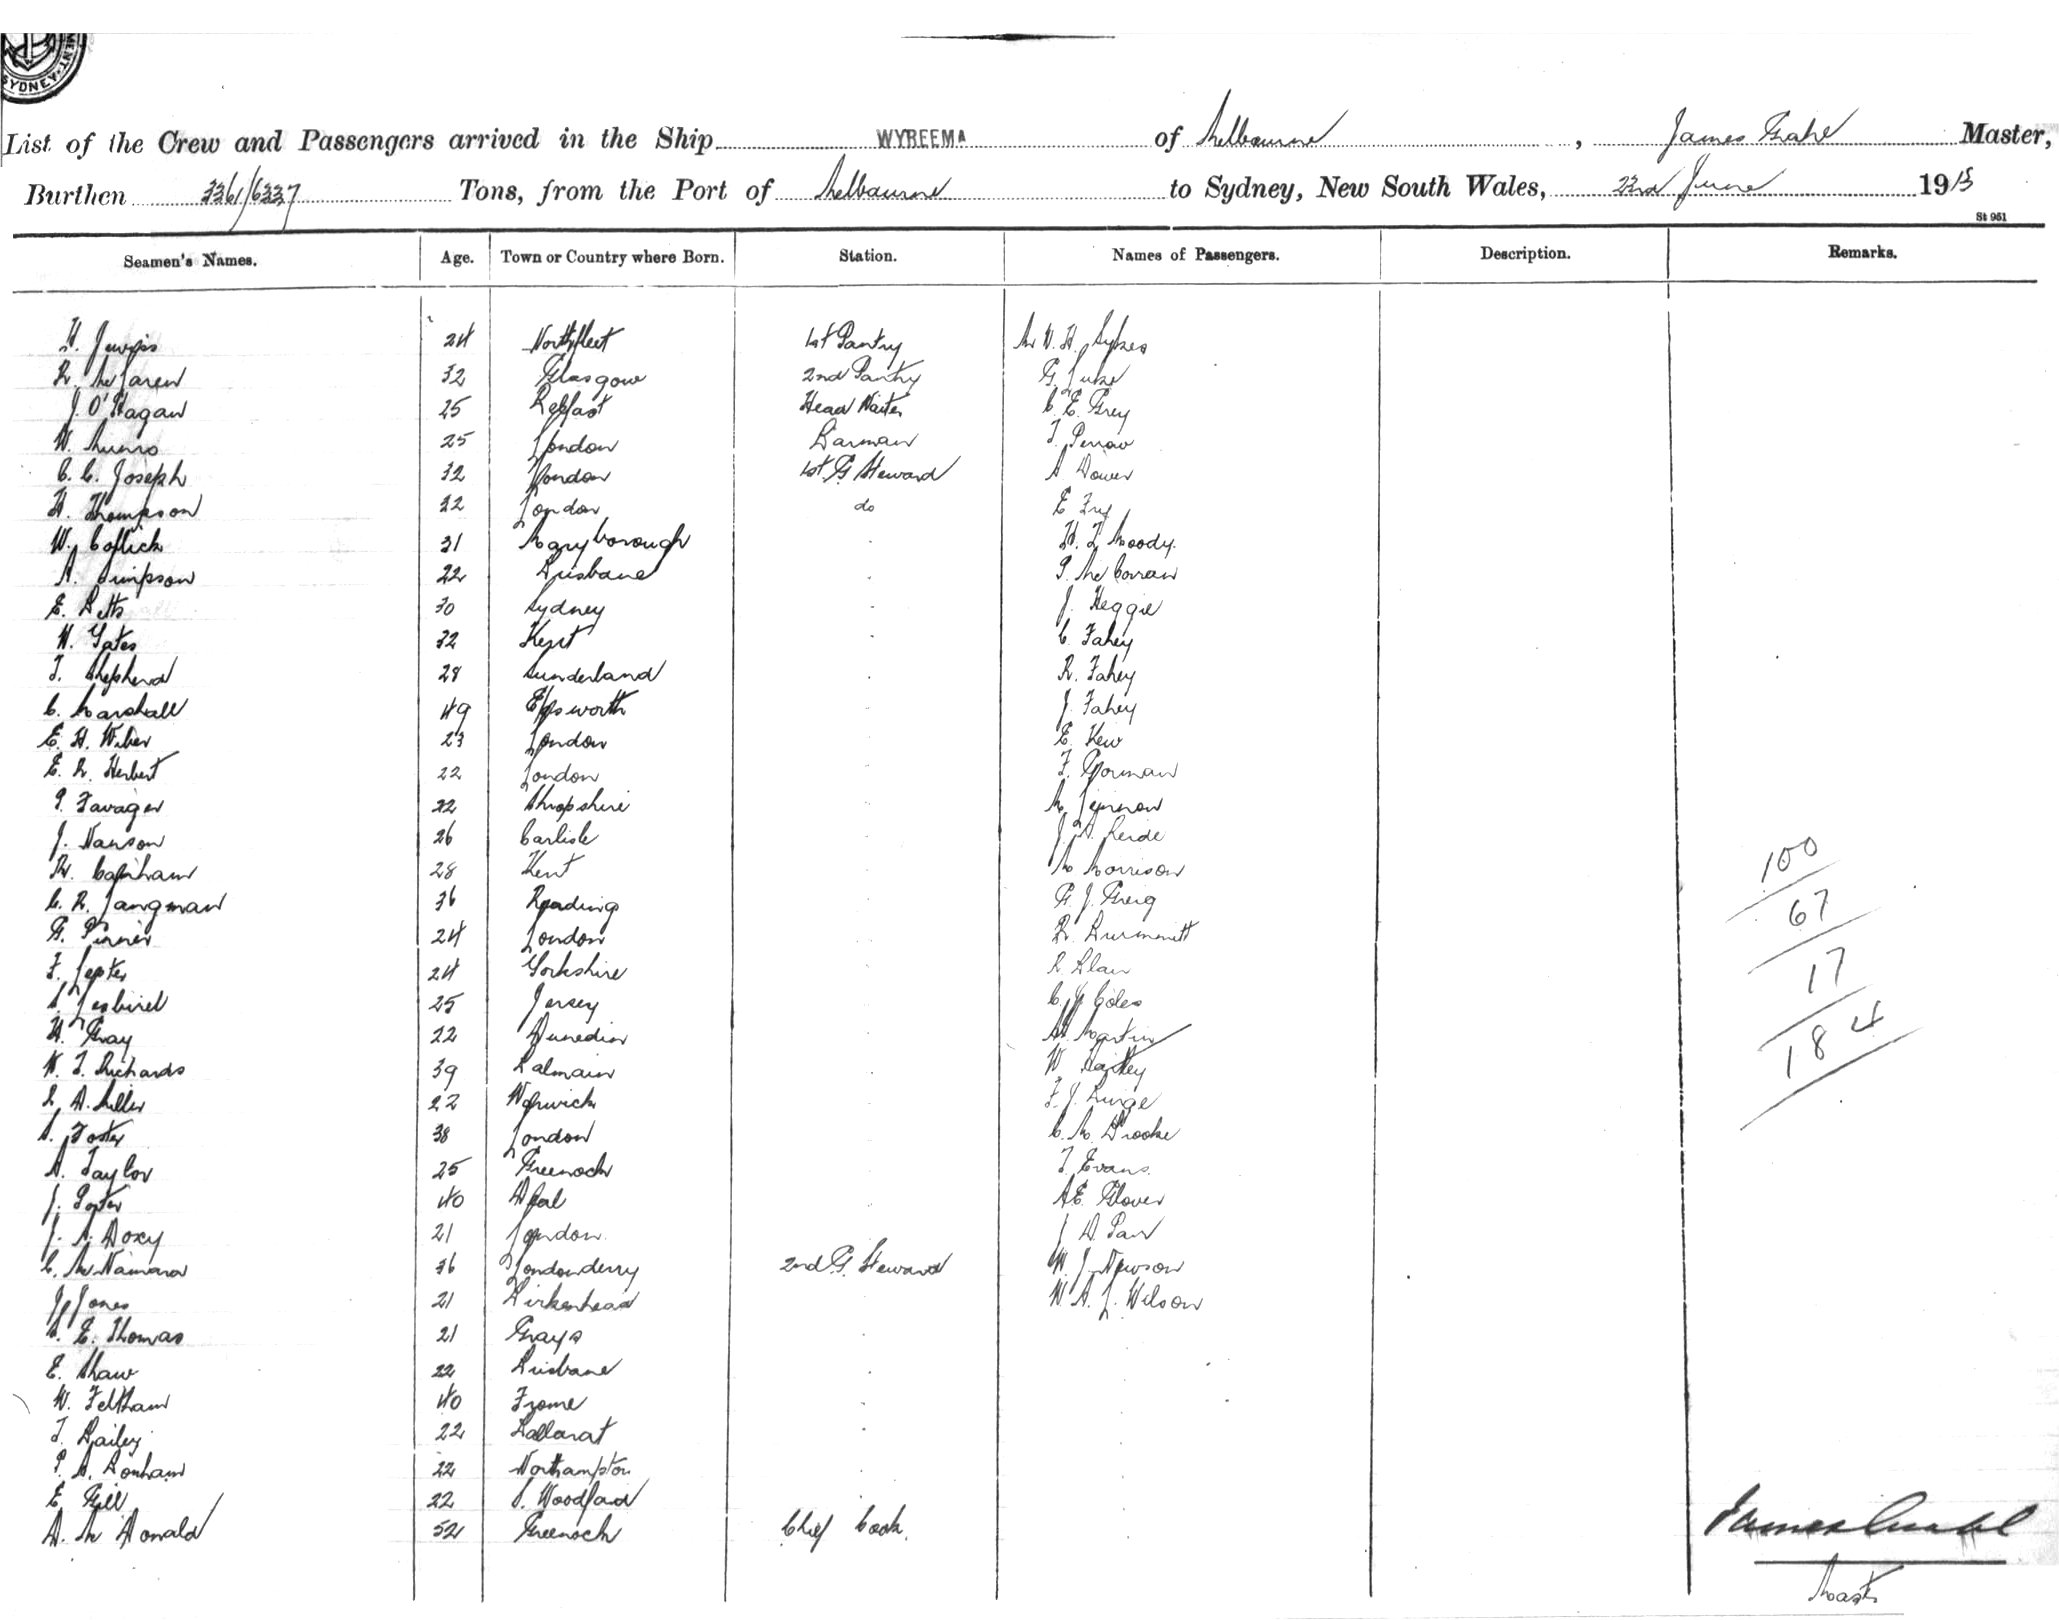 MENT. SYDNEY
List of the Crew and Passengers arrived in the Ship WYREEMA of Melbourne, James Master,
Burthen 3361/6337 Tons, from the Port of Melbourne to Sydney, New South Wales, 23rd June 1915
St 951
Seamen's Names. Age. Town or Country where Born. Station. Names of Passengers. Description. Remarks.
H. 24 Northfleet 1st Pantry Mr W. H. Sykes
R. McLaren 32 Glasgow 2nd Pantry G. Luke
J. O'Hagan 25 Belfast Head Waiter C. E. Grey
W. Munro 25 London Barman T. Perrow
C. C. Joseph 32 London 1st G. Steward A Dower
H. Thompson 22 London do E Fry
W. 31 Maryborough H. L Moody.
A. Simpson 22 Brisbane P. McCorran
E. Betts 30 Sydney J. Heggie
H. Yates 32 Kent C. Fahey
T. Shepherd 28 Sunderland R. Fahey
C. Marshall 49 Epsworth J. Fahey
E. H. Weber 23 London E. Kew
E. R. Herbert 22 London F. Gorman
P. Favager 22 Shropshire M.
J. Nanson 26 Carlisle J. A.
R. 28 Kent M Morrison
C. R. Langman 36 Reading G. J. Greig
G. 24 London R. Burmmett
F. 24 Yorkshire R Blair
A. Lesbirel 25 Jersey C. J. Coles
H. Gray 22 Dunedin Martin
W. T. Richards 39 Balmain W
D. Miller 22 Warwick F. J. Burge
A. Foster 38 London C. M. Brooke
A. Taylor 25 Greenock T. Evans.
J. Porter 40 Deal A E Glover
J. A. Doxy 21 London J D Parr
C. McNamara 36 Londonderry 2nd G. Steward W. J. Newson
J. Jones 21 Birkenhead W. A. L. Wilson
A. E. Thomas 21 Grays
E. Shaw 22 Brisbane
W. Feltham 40 Frome
T. Bailey 22 Ballarat
P. A. Bonham 22 Northampton
E Gill 22 S. Woodford
D. McDonald 52 Greenock Chief Cook.
100
67
17
184
James
Master